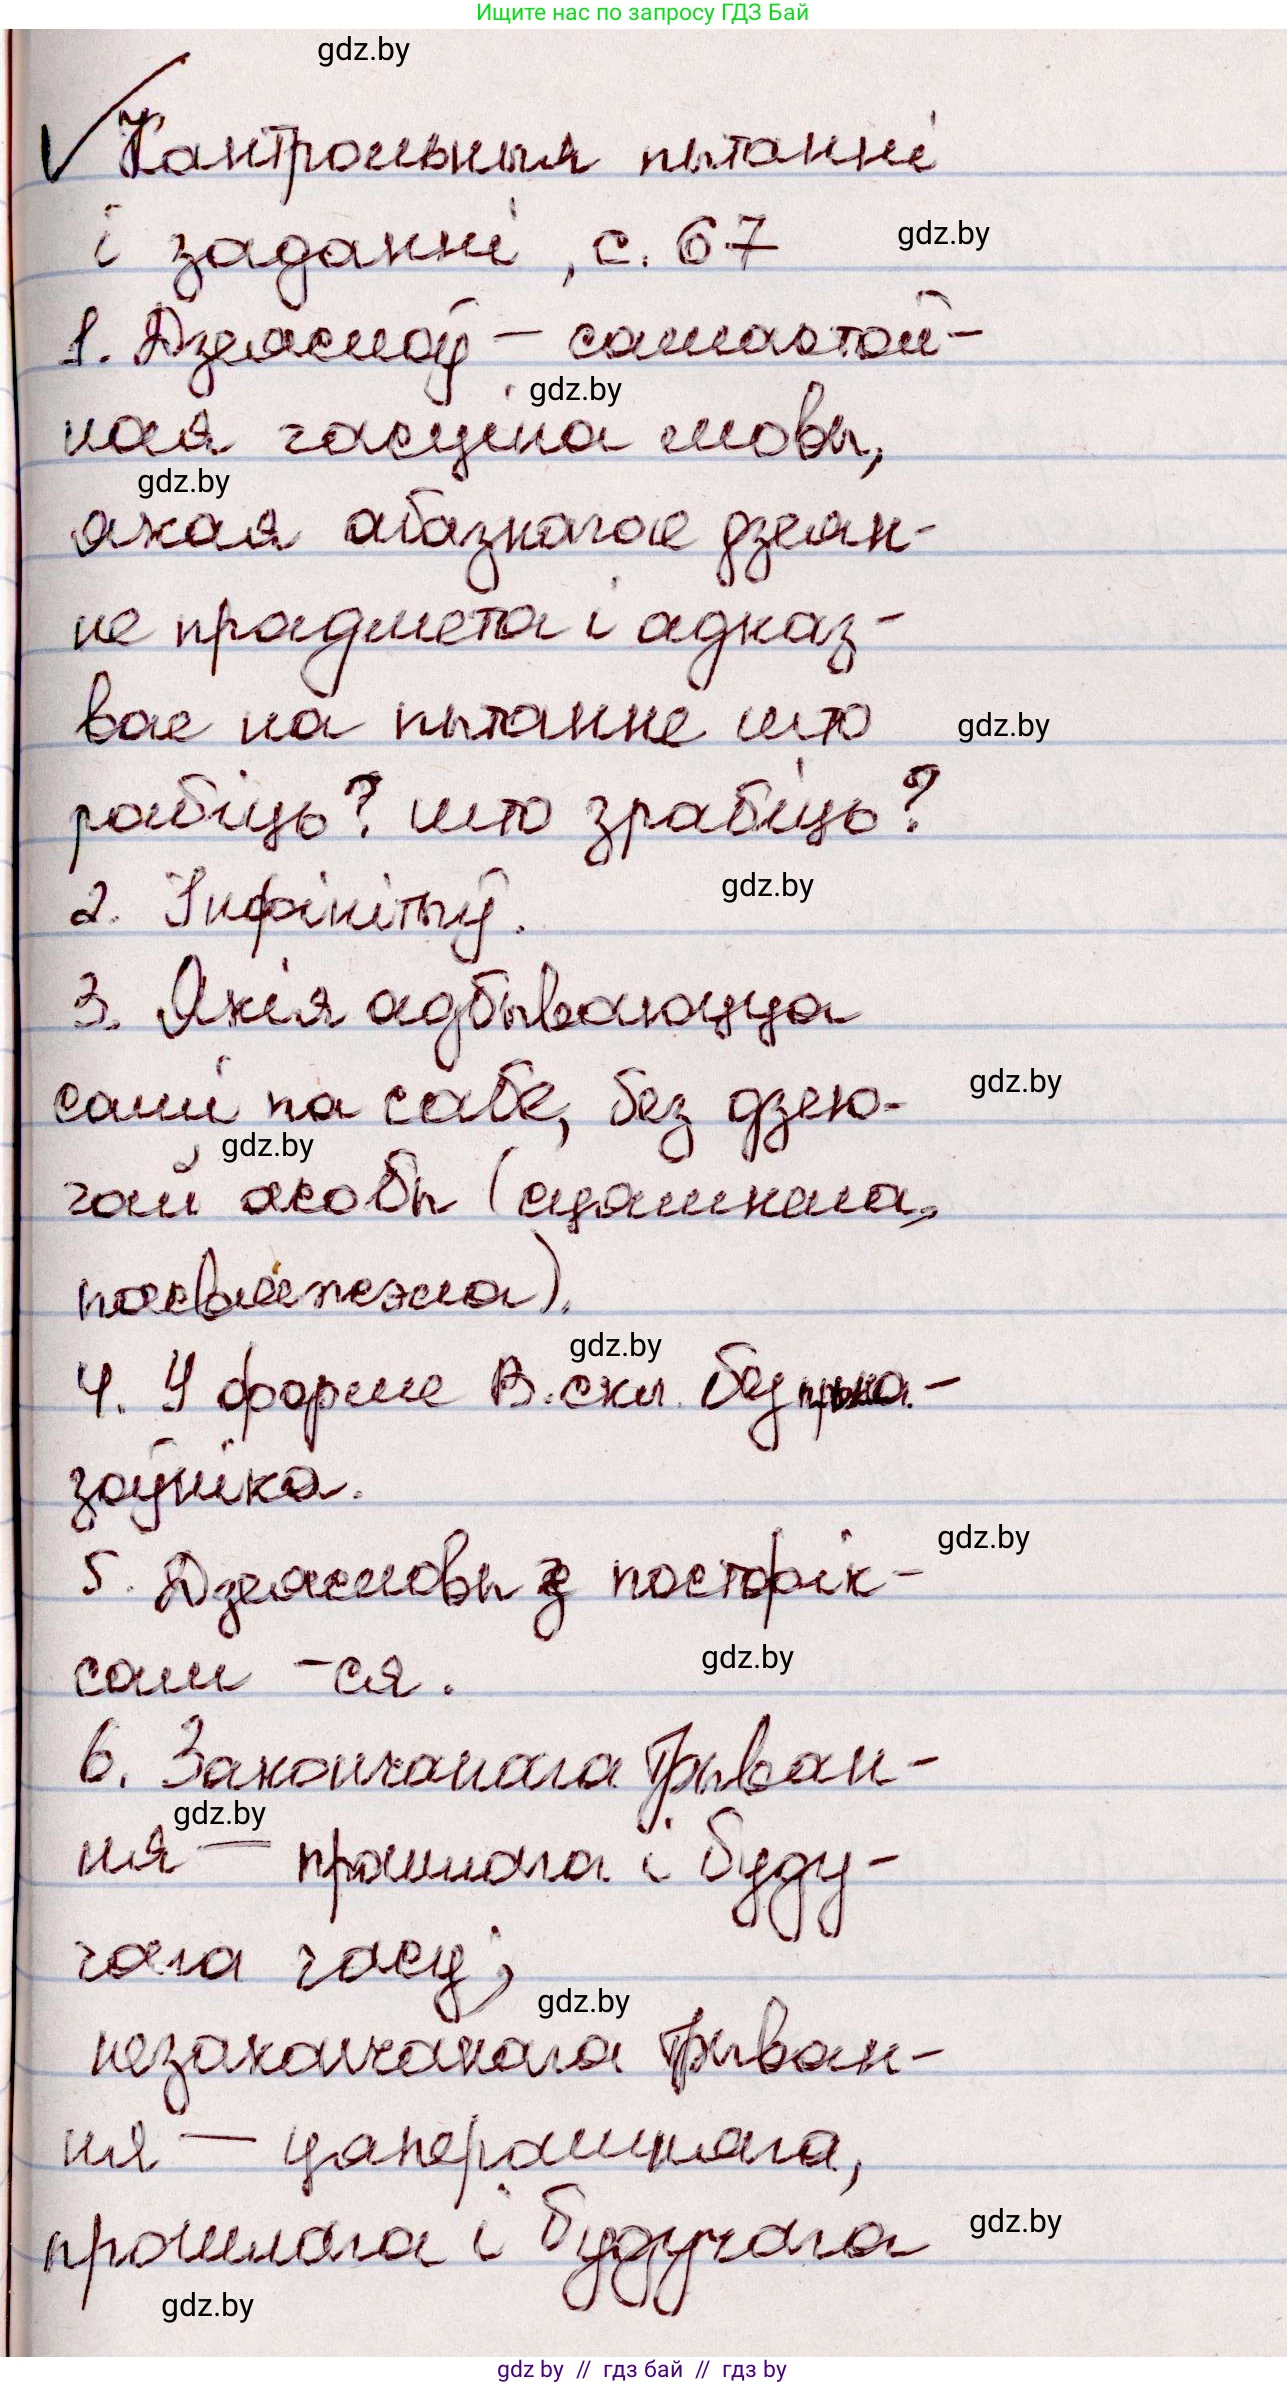 Ищите нас по запросу ГДЗ Бай
gdz.by
Кантрольныя пытанні
і заданні, с. 67
gdz.by
1. Дзеяслоў – самастой-
gdz.by
ная часціна мовы,
gdz.by
якая абазначае дзеян-
не прадмета і адказ-
вае на пытанне што
gdz.by
рабіць? што зрабіць?
2. Інфінітыў.
gdz.by
3. Якія адбываюцца
самі па сабе, без дзею-
gdz.by
gdz.by
чай асобы (сцямнела,
пасвятлела).
gdz.by
4. У форме В.скл. без прына-
зоўніка.
gdz.by
5. Дзеясловы з постфік-
сам -ся.
gdz.by
6. Закончанага трыван-
gdz.by
ня – прошлага і буду-
чага часу;
gdz.by
незакончанага трыван-
ня – цяперашняга,
прошлага і будучага
gdz.by
gdz.by
gdz by // гдз бай // гдз by